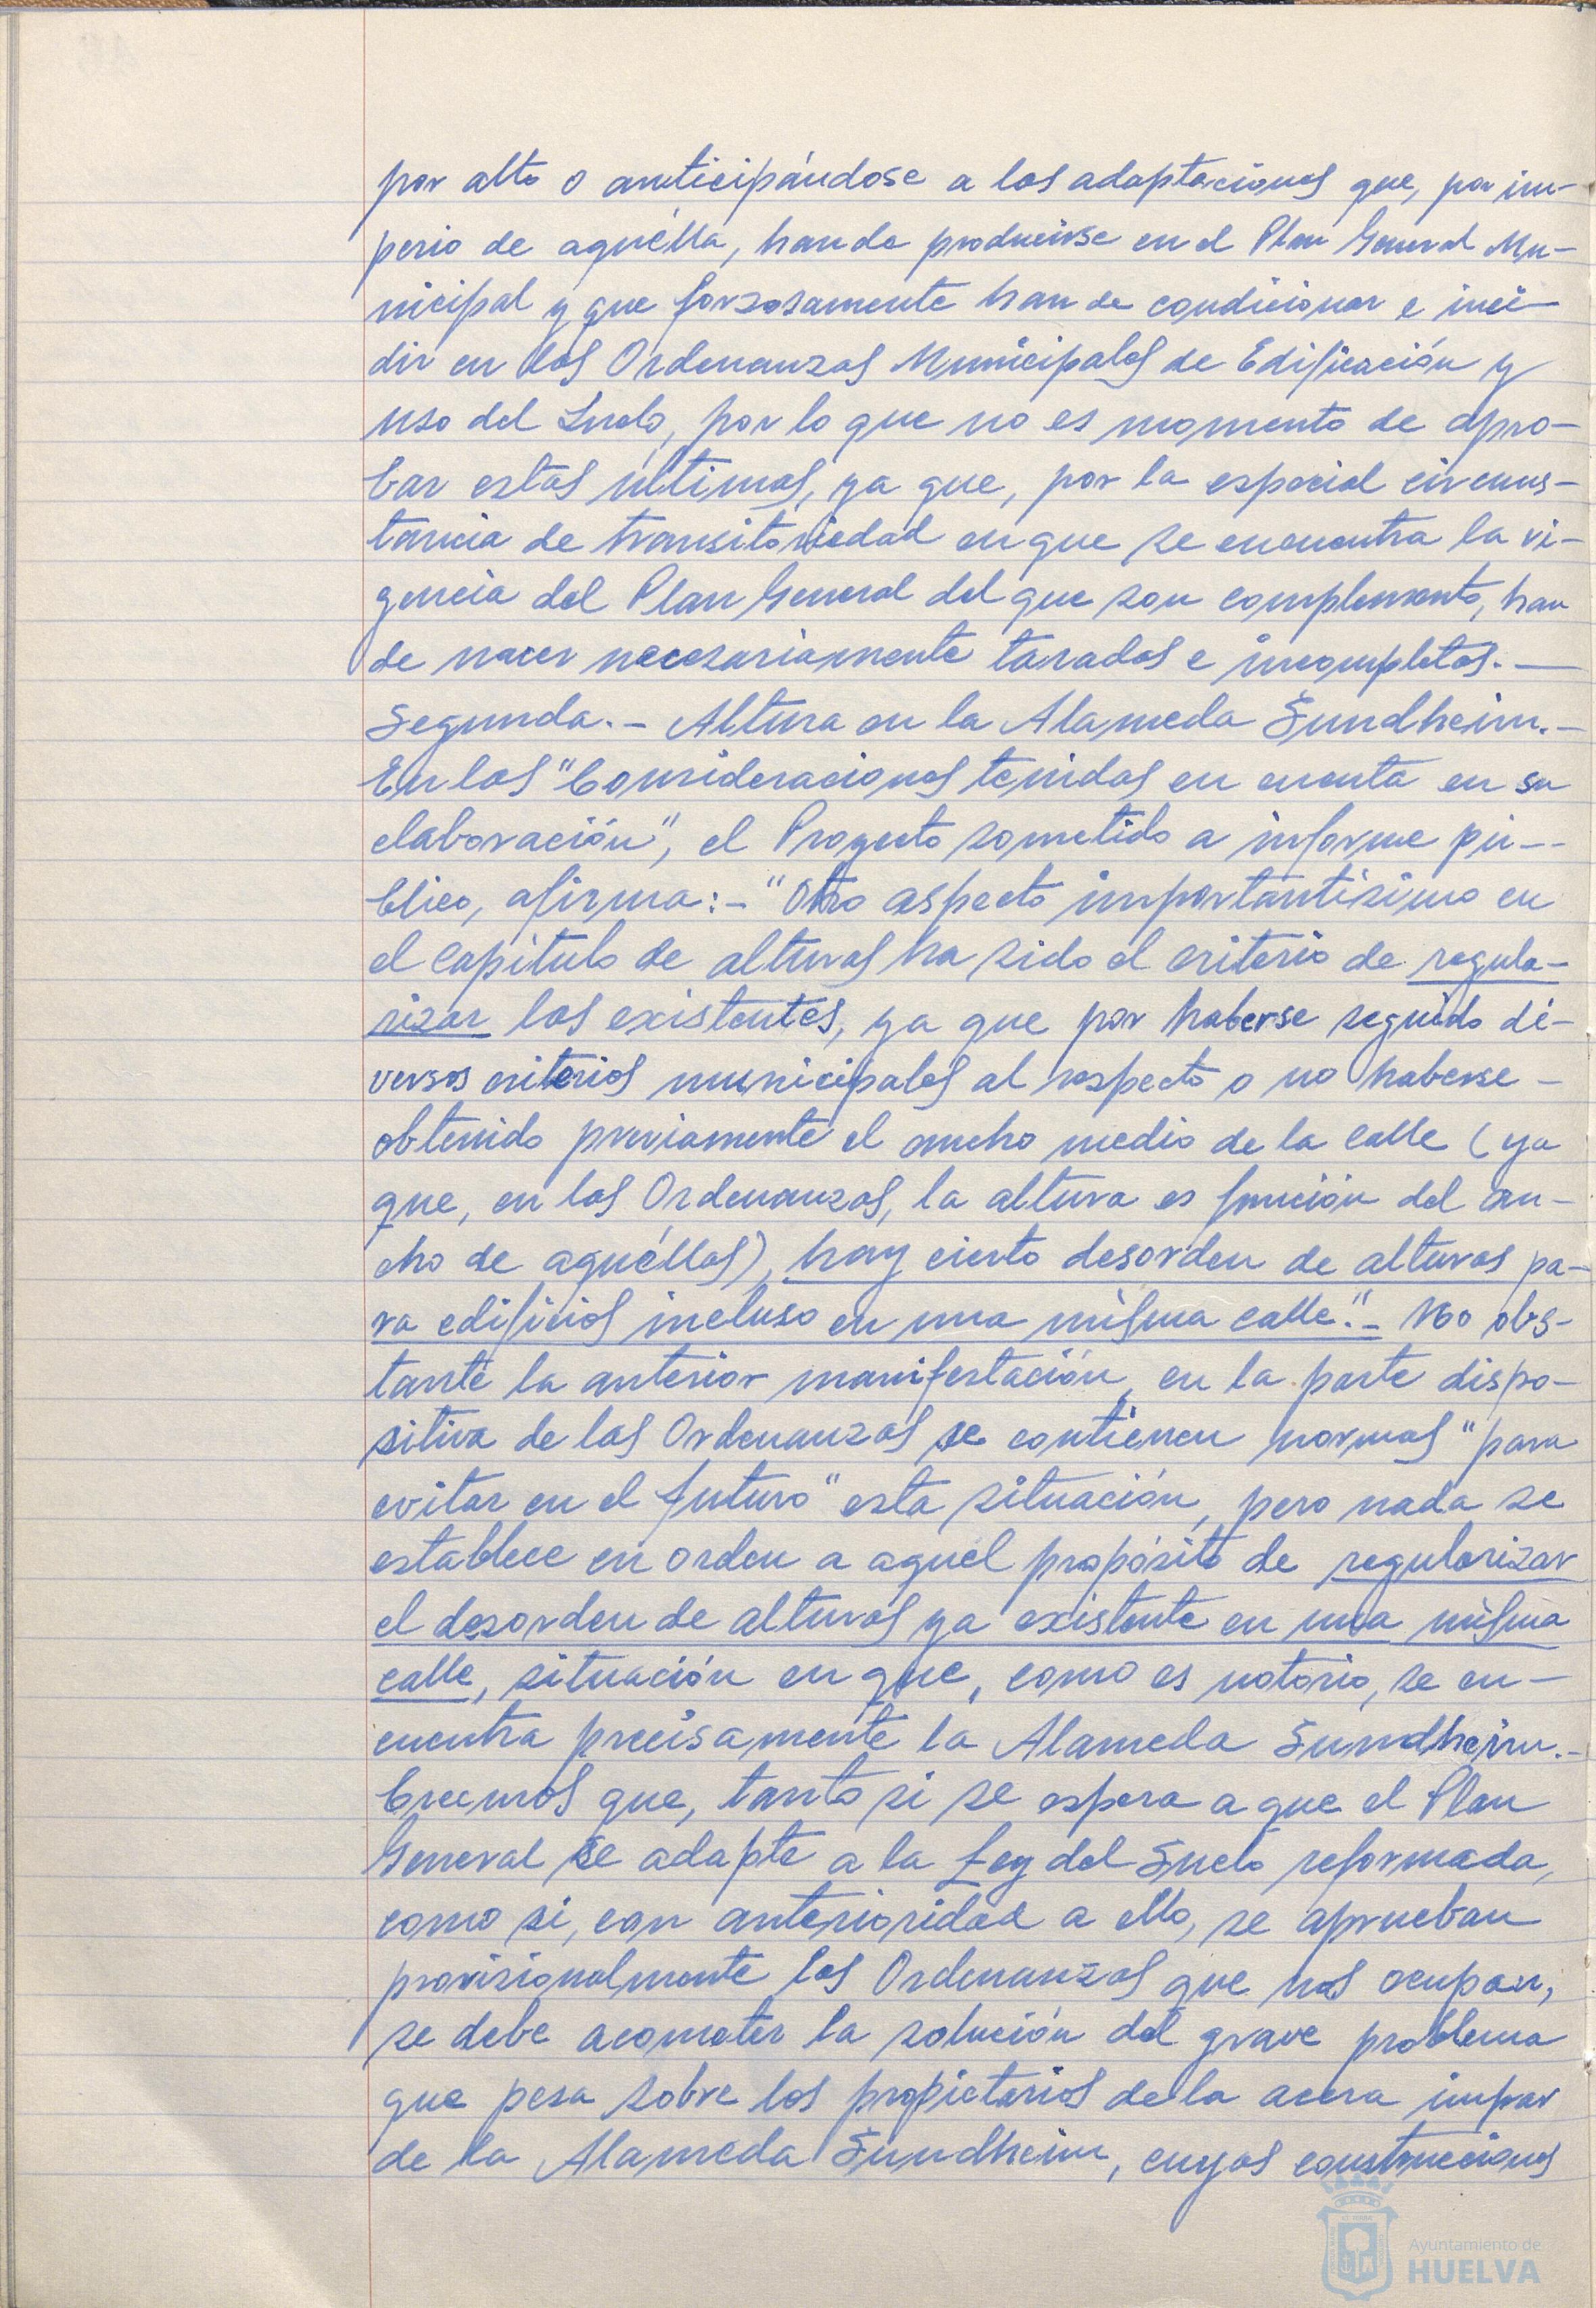 por alto o anticipándose a las adaptaciones que, por im-
perio de aquélla, han de producirse en el Plan General Mu-
nicipal y que forzosamente han de condicionar e inci-
dir en las Ordenanzas Municipales de Edificación y
uso del Suelo, por lo que no es momento de apro-
bar estas últimas, ya que, por la especial circuns-
tancia de transitoriedad en que se encuentra la vi-
gencia del Plan General del que son complemento, han
de nacer necesariamente taradas e incompletas.-
Segunda.- Altura en la Alameda Sundheim.-
En las "Consideraciones tenidas en cuenta en su
elaboración", el Proyecto sometido a informe pú--
blico, afirma:- "Otro aspecto importantísimo en
el capítulo de alturas ha sido el criterio de regula-
rizar las existentes, ya que por haberse seguido di-
versos criterios municipales al respecto o no haberse-
obtenido previamente el ancho medio de la calle (ya
que, en las Ordenanzas, la altura es función del an-
cho de aquéllas), hay cierto desorden de alturas pa-
ra edificios incluso en una misma calle".- No obs-
tante la anterior manifestación, en la parte dispo-
sitiva de las Ordenanzas se contienen normas "para
evitar en el futuro" esta situación, pero nada se
establece en orden a aquel propósito de regularizar
el desorden de alturas ya existente en una misma
calle, situación en que, como es notorio, se en-
cuentra precisamente la Alameda Sundheim.-
Creemos que, tanto si se espera a que el Plan
General se adapte a la Ley del Suelo reformada,
como si, con anterioridad a ello, se aprueban
provisionalmente las Ordenanzas que nos ocupan,
se debe acometer la solución del grave problema
que pesa sobre los propietarios de la acera impar
de la Alameda Sundheim, cuyas construcciones
Ayuntamiento de
HUELVA